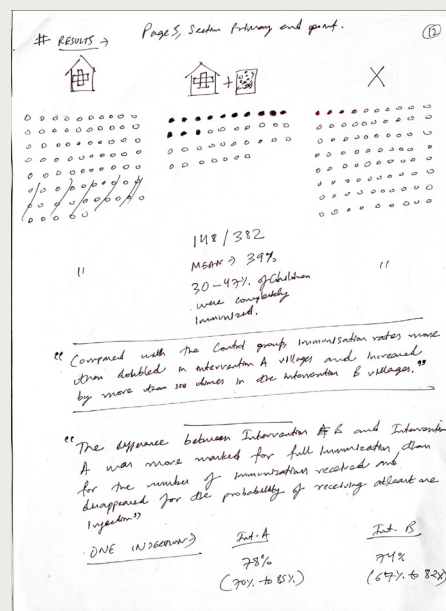 # RESULTS → Page 5, Section Primary end point.
12
+
X
148/382
MEAN → 39%
30-47% of Children
were completely
Immunized.
"
"
"Compared with the Control group, immunisation rates more
than doubled in intervention A villages and increased
by more than six times in the intervention B villages."
"The difference between Intervention B and Intervention
A was more marked for full immunization than
for the number of immunization received and
disappeared for the probability of receiving atleast one
Injection"
ONE INJECTION →
Int. A
78%
(70% to 85%)
Int. B
74%
(67% to 82%)